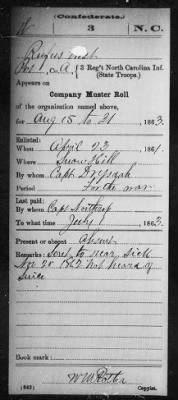 (Confederate.)
3
N.C.
Rufus
Pvt., Co. A, 3 Reg't North Carolina Inf.
(State Troops.)
Appears on
Company Muster Roll
of the organization named above,
for Aug 15 to 31, 1863.
Enlisted:
When April 23, 1861.
Where Snow Hill
By whom Capt.
Period For the war
Last paid:
By whom Capt Northrop
To what time July 1, 1863.
Present or absent Absent
Remarks: Sent to rear, sick
Nov 20 1862 Not heard of
Since
Book mark:
(642)
Copyist.